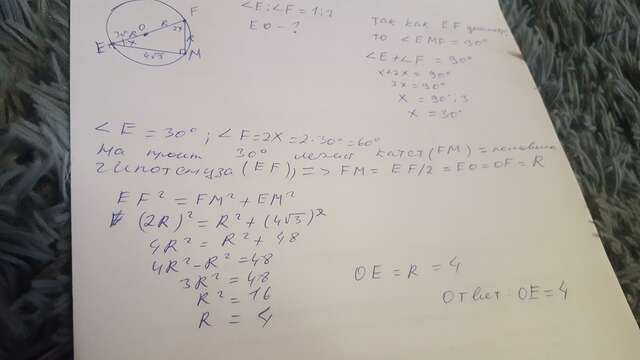 ∠E:∠F = 1:2
EO - ?
F
R
2x
O
R
E
x
R
4√3
M
так как EF диаметр,
то ∠EMF = 90°
∠E + ∠F = 90°
x + 2x = 90°
3x = 90°
x = 90°:3
x = 30°
∠E = 30°; ∠F = 2x = 2·30° = 60°
На против 30° лежит катет (FM) = половина
гипотенуза (EF), => FM = EF/2 = EO = OF = R
EF² = FM² + EM²
(2R)² = R² + (4√3)²
4R² = R² + 48
4R² - R² = 48
3R² = 48
R² = 16
R = 4
OE = R = 4
Ответ: OE = 4